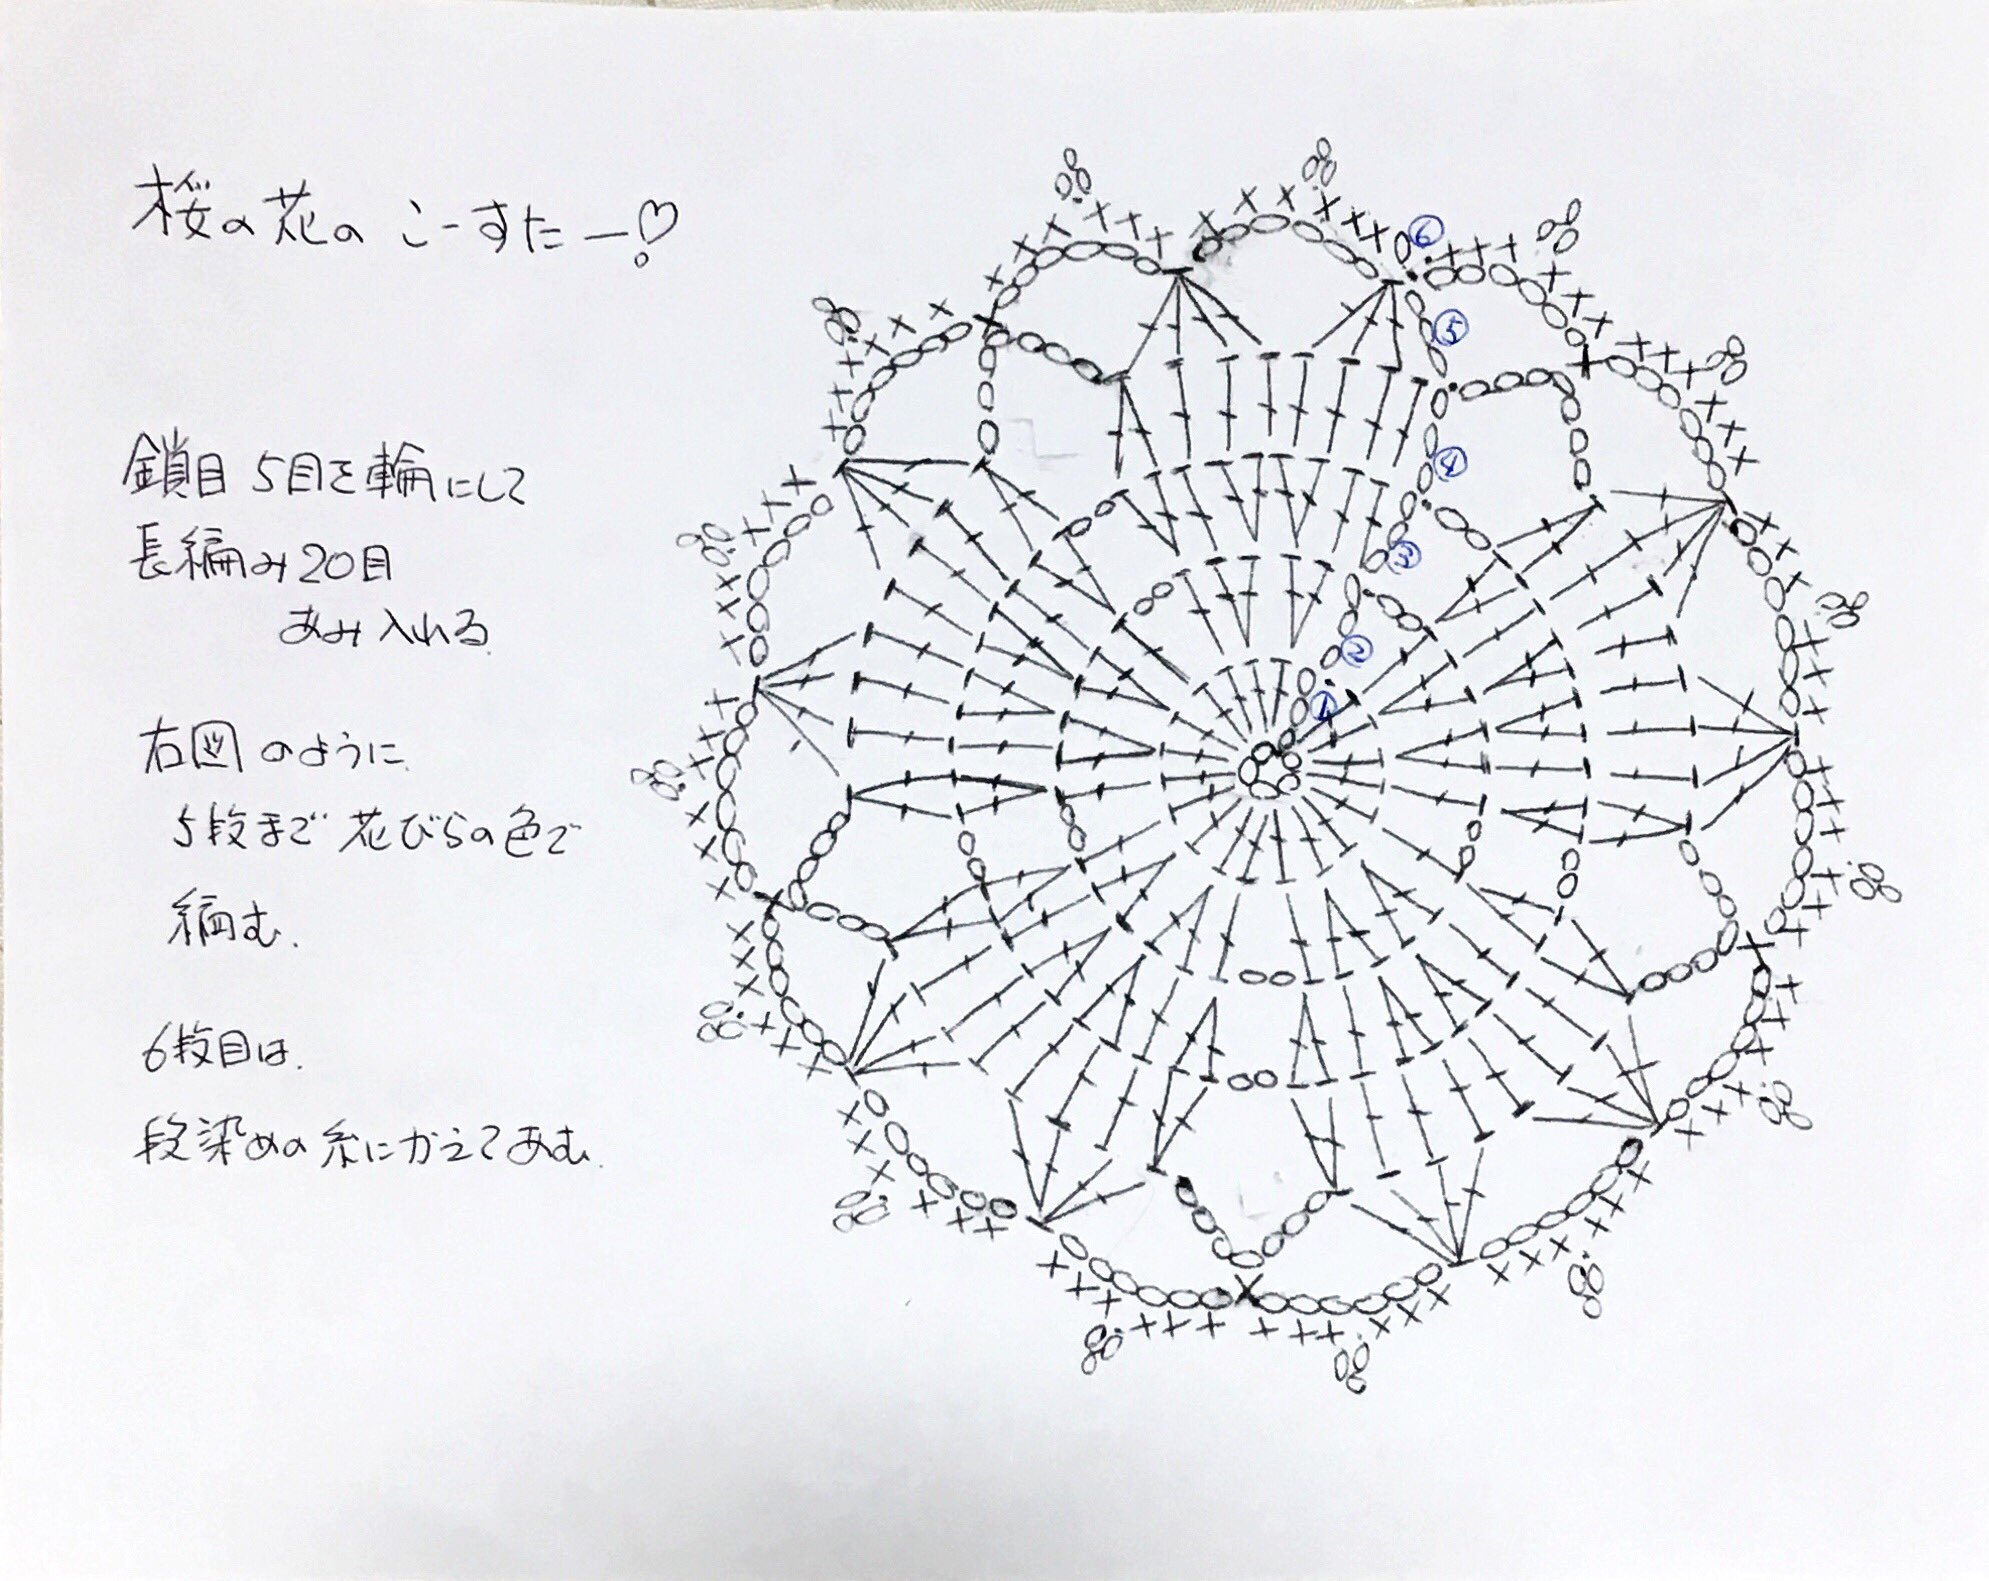 桜の花の こーすたー♡
鎖目 5目を輪にして
長編み20目
あみ入れる.
右図のように.
5段まで 花びらの色で
編む.
6段目は.
段染めの糸にかえてあむ.
⑥
⑤
④
③
②
①